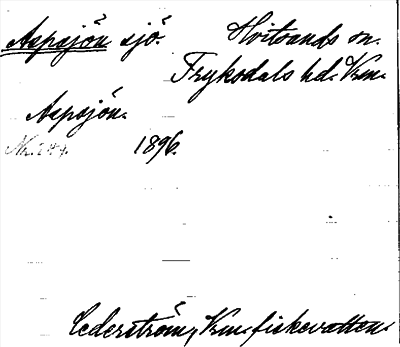 Aspsjön sjö. Hvitsands sn.
Fryksdals hd. Vrm.
Aspsjön.
1896.
Cederström, Vrm. fiskevatten.